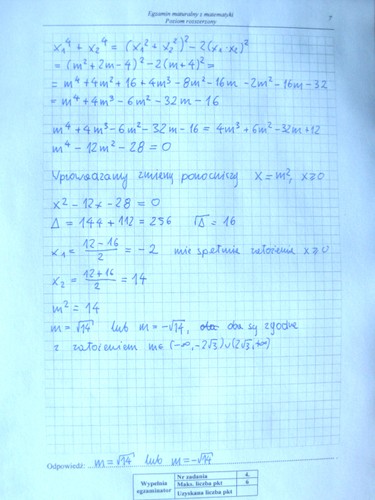 Egzamin maturalny z matematyki
Poziom rozszerzony
7
x₁⁴ + x₂⁴ = (x₁² + x₂²)² - 2(x₁·x₂)²
= (m² + 2m - 4)² - 2(m+4)² =
= m⁴ + 4m² + 16 + 4m³ - 8m² - 16m - 2m² - 16m - 32
= m⁴ + 4m³ - 6m² - 32m - 16
m⁴ + 4m³ - 6m² - 32m - 16 = 4m³ + 6m² - 32m + 12
m⁴ - 12m² - 28 = 0
Wprowadzamy zmienną pomocniczą x = m², x ≥ 0
x² - 12x - 28 = 0
Δ = 144 + 112 = 256 √Δ = 16
x₁ = (12 - 16)/2 = -2 nie spełnia założenia x ≥ 0
x₂ = (12 + 16)/2 = 14
m² = 14
m = √14 lub m = -√14, oba są zgodne
z założeniem m ∈ (-∞, -2√3) ∪ (2√3, +∞)
Odpowiedź: m = √14 lub m = -√14
Wypełnia egzaminator
Nr zadania 4.
Maks. liczba pkt 6
Uzyskana liczba pkt